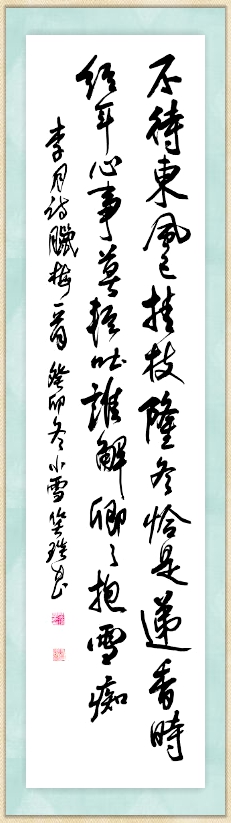 不待東風已掛枝隆冬恰是遞香時
經年心事莫輕吐誰解卿卿抱雪痴
李月詩臘梅一首癸卯冬小雪笑強書